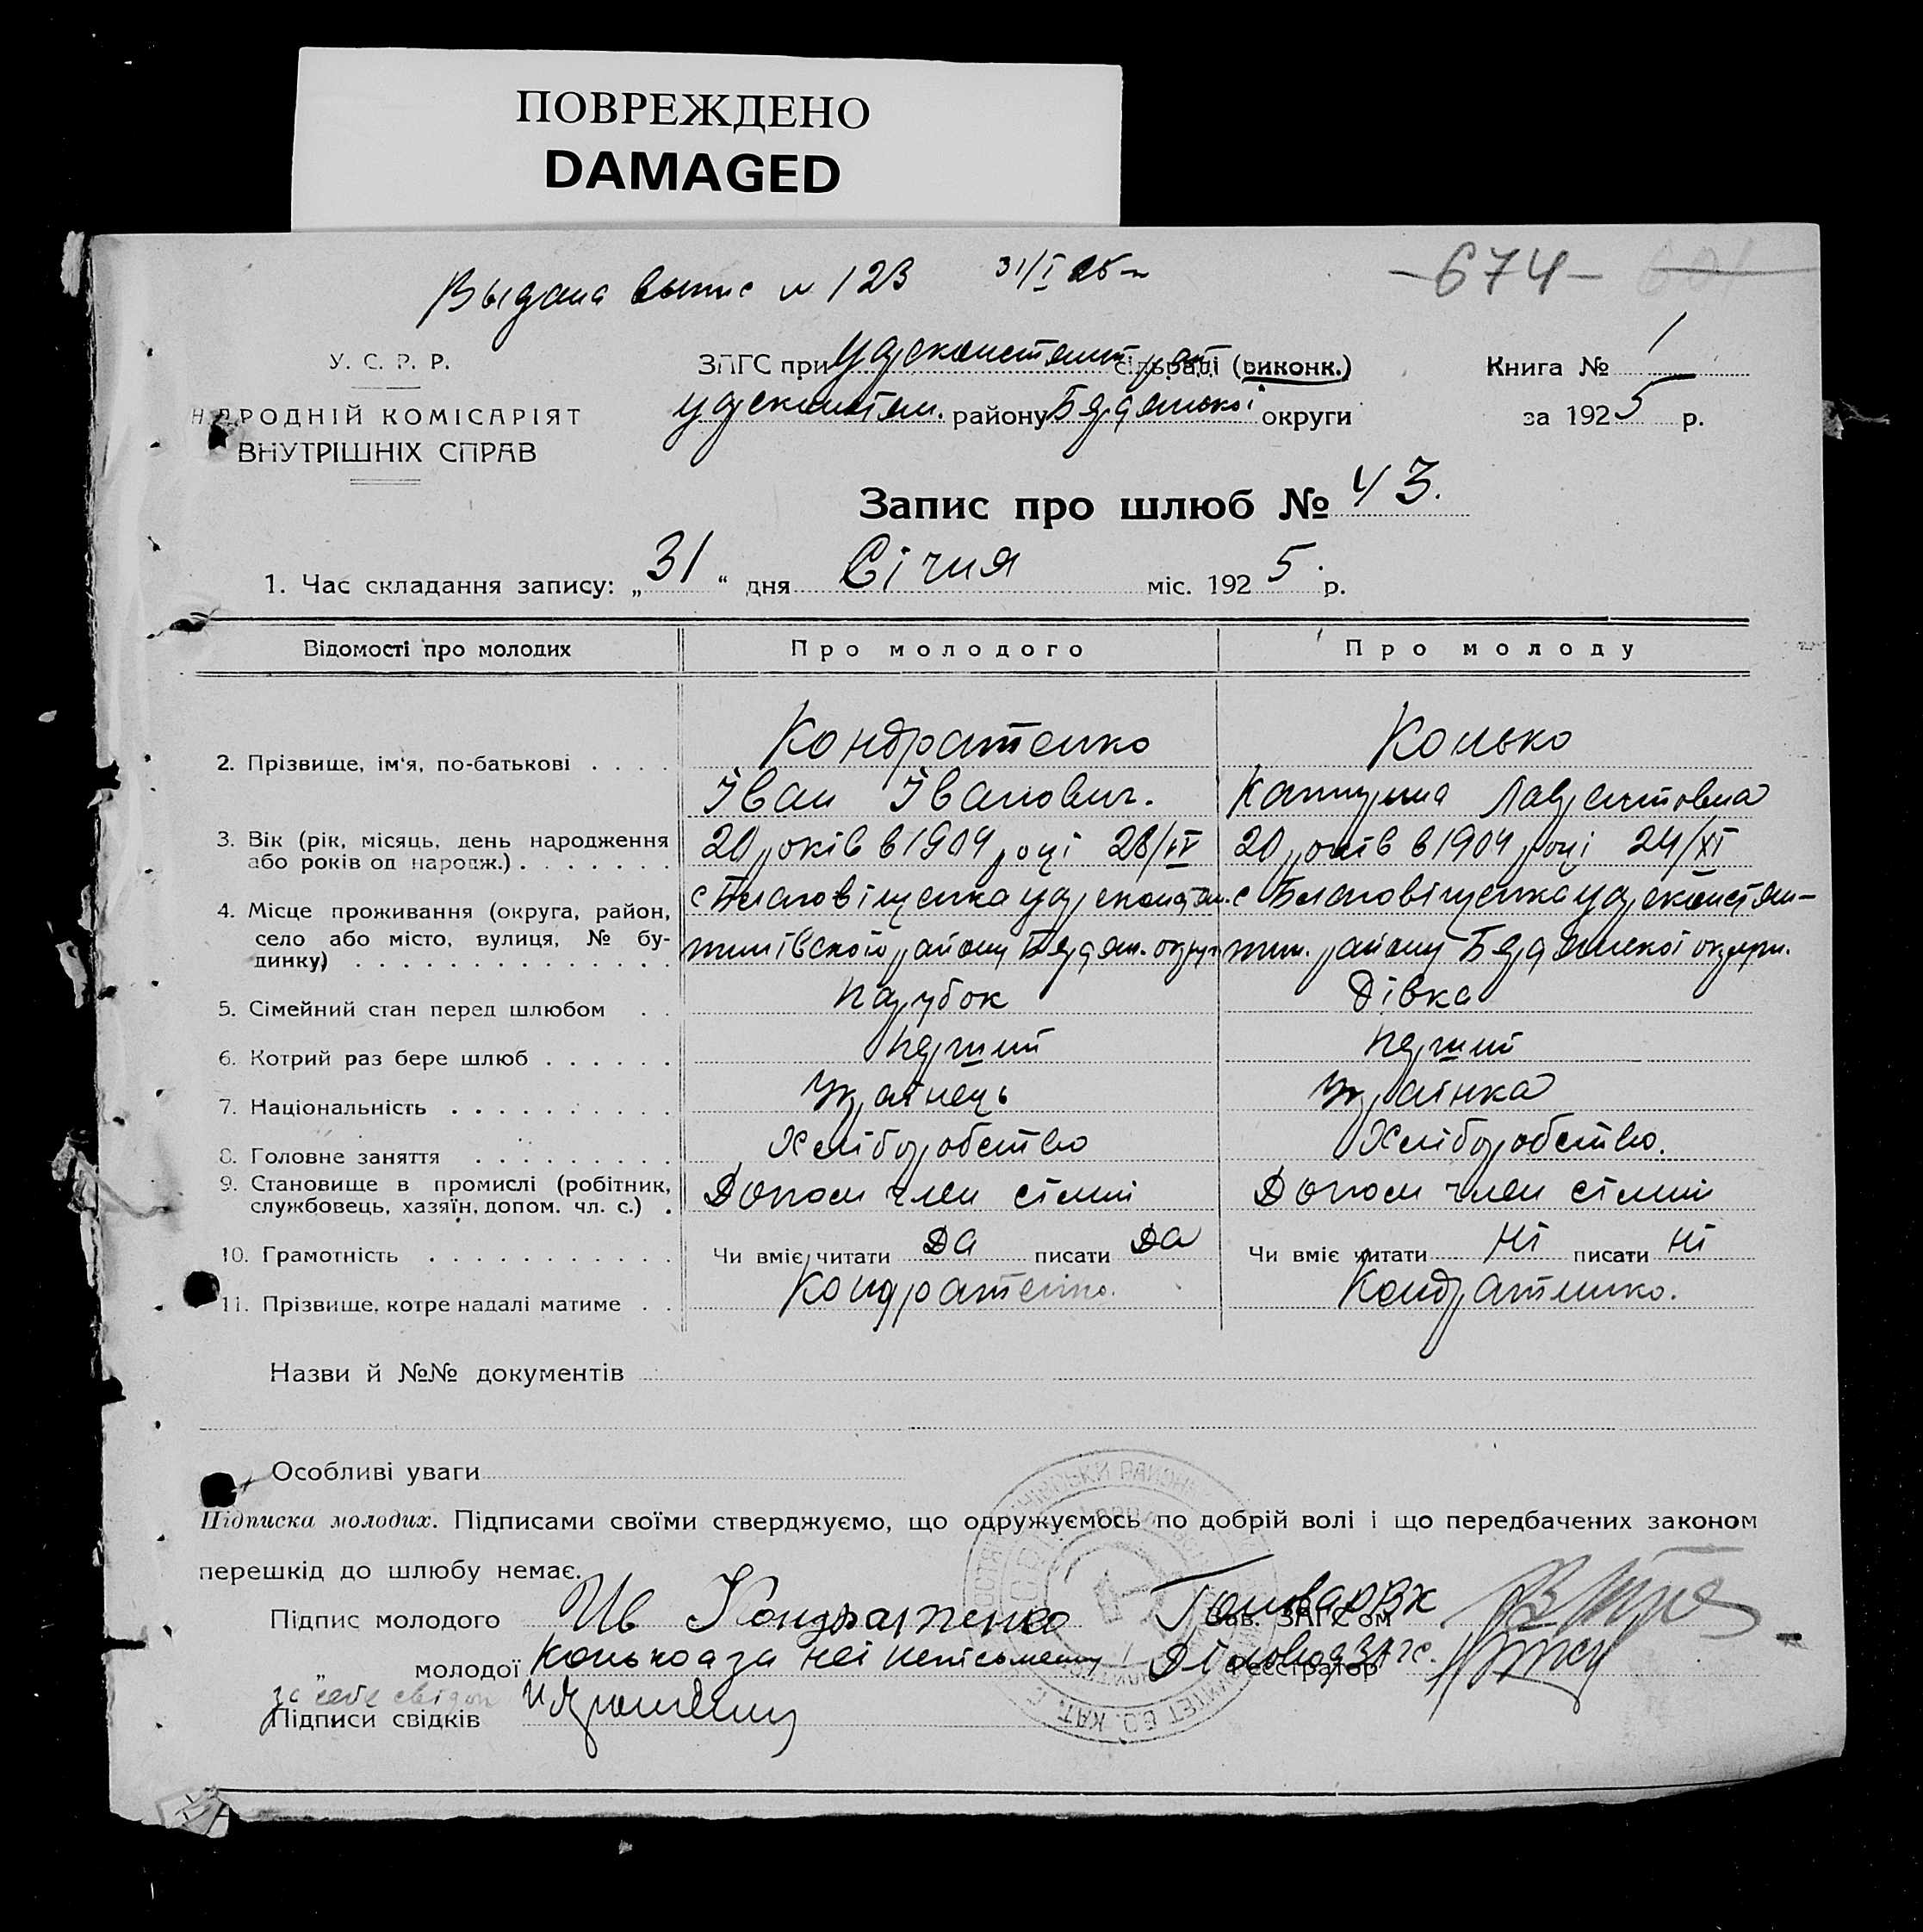 ПОВРЕЖДЕНО
DAMAGED
Выдана выпис № 123 31/I 25 г
—674—
У. С. Р. Р.
НАРОДНІЙ КОМІСАРІЯТ
ВНУТРІШНІХ СПРАВ
ЗАГС при Царсконстант сільраді (виконк.)
Царсконстан. району Бердянської округи
Книга № 1
за 1925 р.
Запис про шлюб № 43.
1. Час складання запису: „31“ дня Січня міс. 1925 р.
Відомості про молодих Про молодого Про молоду
2. Прізвище, ім'я, по-батькові . . . . Кондратенко Конько
Іван Іванович. Катерина Лаврентовна
3. Вік (рік, місяць, день народження 20 років в 1904 році 28/IV 20 років в 1904 році 24/XI
або років од народж.) . . . . . . .
4. Місце проживання (округа, район, с Благовіщенка Царсконстан. с Благовіщенка Царсконстан-
село або місто, вулиця, № бу-
динку) . . . . . . . . . . . . . . тинівского району Бердян. округ тин. району Бердянської округи.
5. Сімейний стан перед шлюбом . . Парубок Дівка
6. Котрий раз бере шлюб . . . . . . Перший Перший
7. Національність . . . . . . . . . . Українець Українка
8. Головне заняття . . . . . . . . . Хліборобство Хліборобство.
9. Становище в промислі (робітник, Допом член сімйі Допом член сімйі
службовець, хазяїн, допом. чл. с.) .
10. Грамотність . . . . . . . . . . . Чи вміє читати Да писати Да Чи вміє читати Ні писати Ні
11. Прізвище, котре надалі матиме . . Кондратенко. Кондратенко.
Назви й №№ документів
Особливі уваги
Підписка молодих. Підписами своїми стверджуємо, що одружуємось по добрій волі і що передбачених законом
перешкід до шлюбу немає.
Підпис молодого Ив Кондратенко Голова РВК Зав. ЗАГС'ом
„ молодої Конько а за неї неписьменну Діловод ЗАГС. Реєстратор
за себе свідок
Підписи свідків